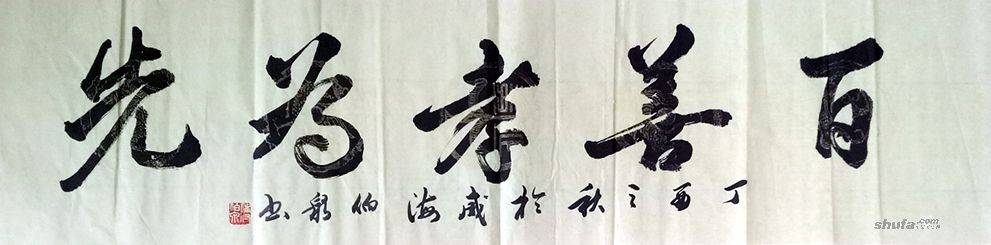 百善孝為先
丁酉之秋於威海伯泉書
shufa.com